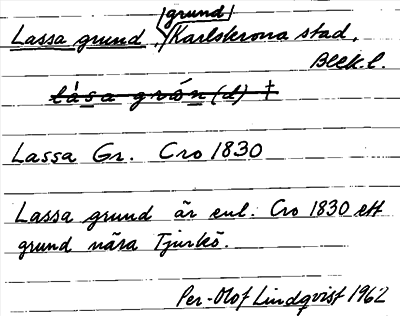 grund
Lassa grund, Karlskrona stad,
Blek. l.
låsa grön (d) ‡
Lassa Gr. Cro 1830
Lassa grund är enl. Cro 1830 ett
grund nära Tjurkö.
Per-Olof Lindqvist 1962